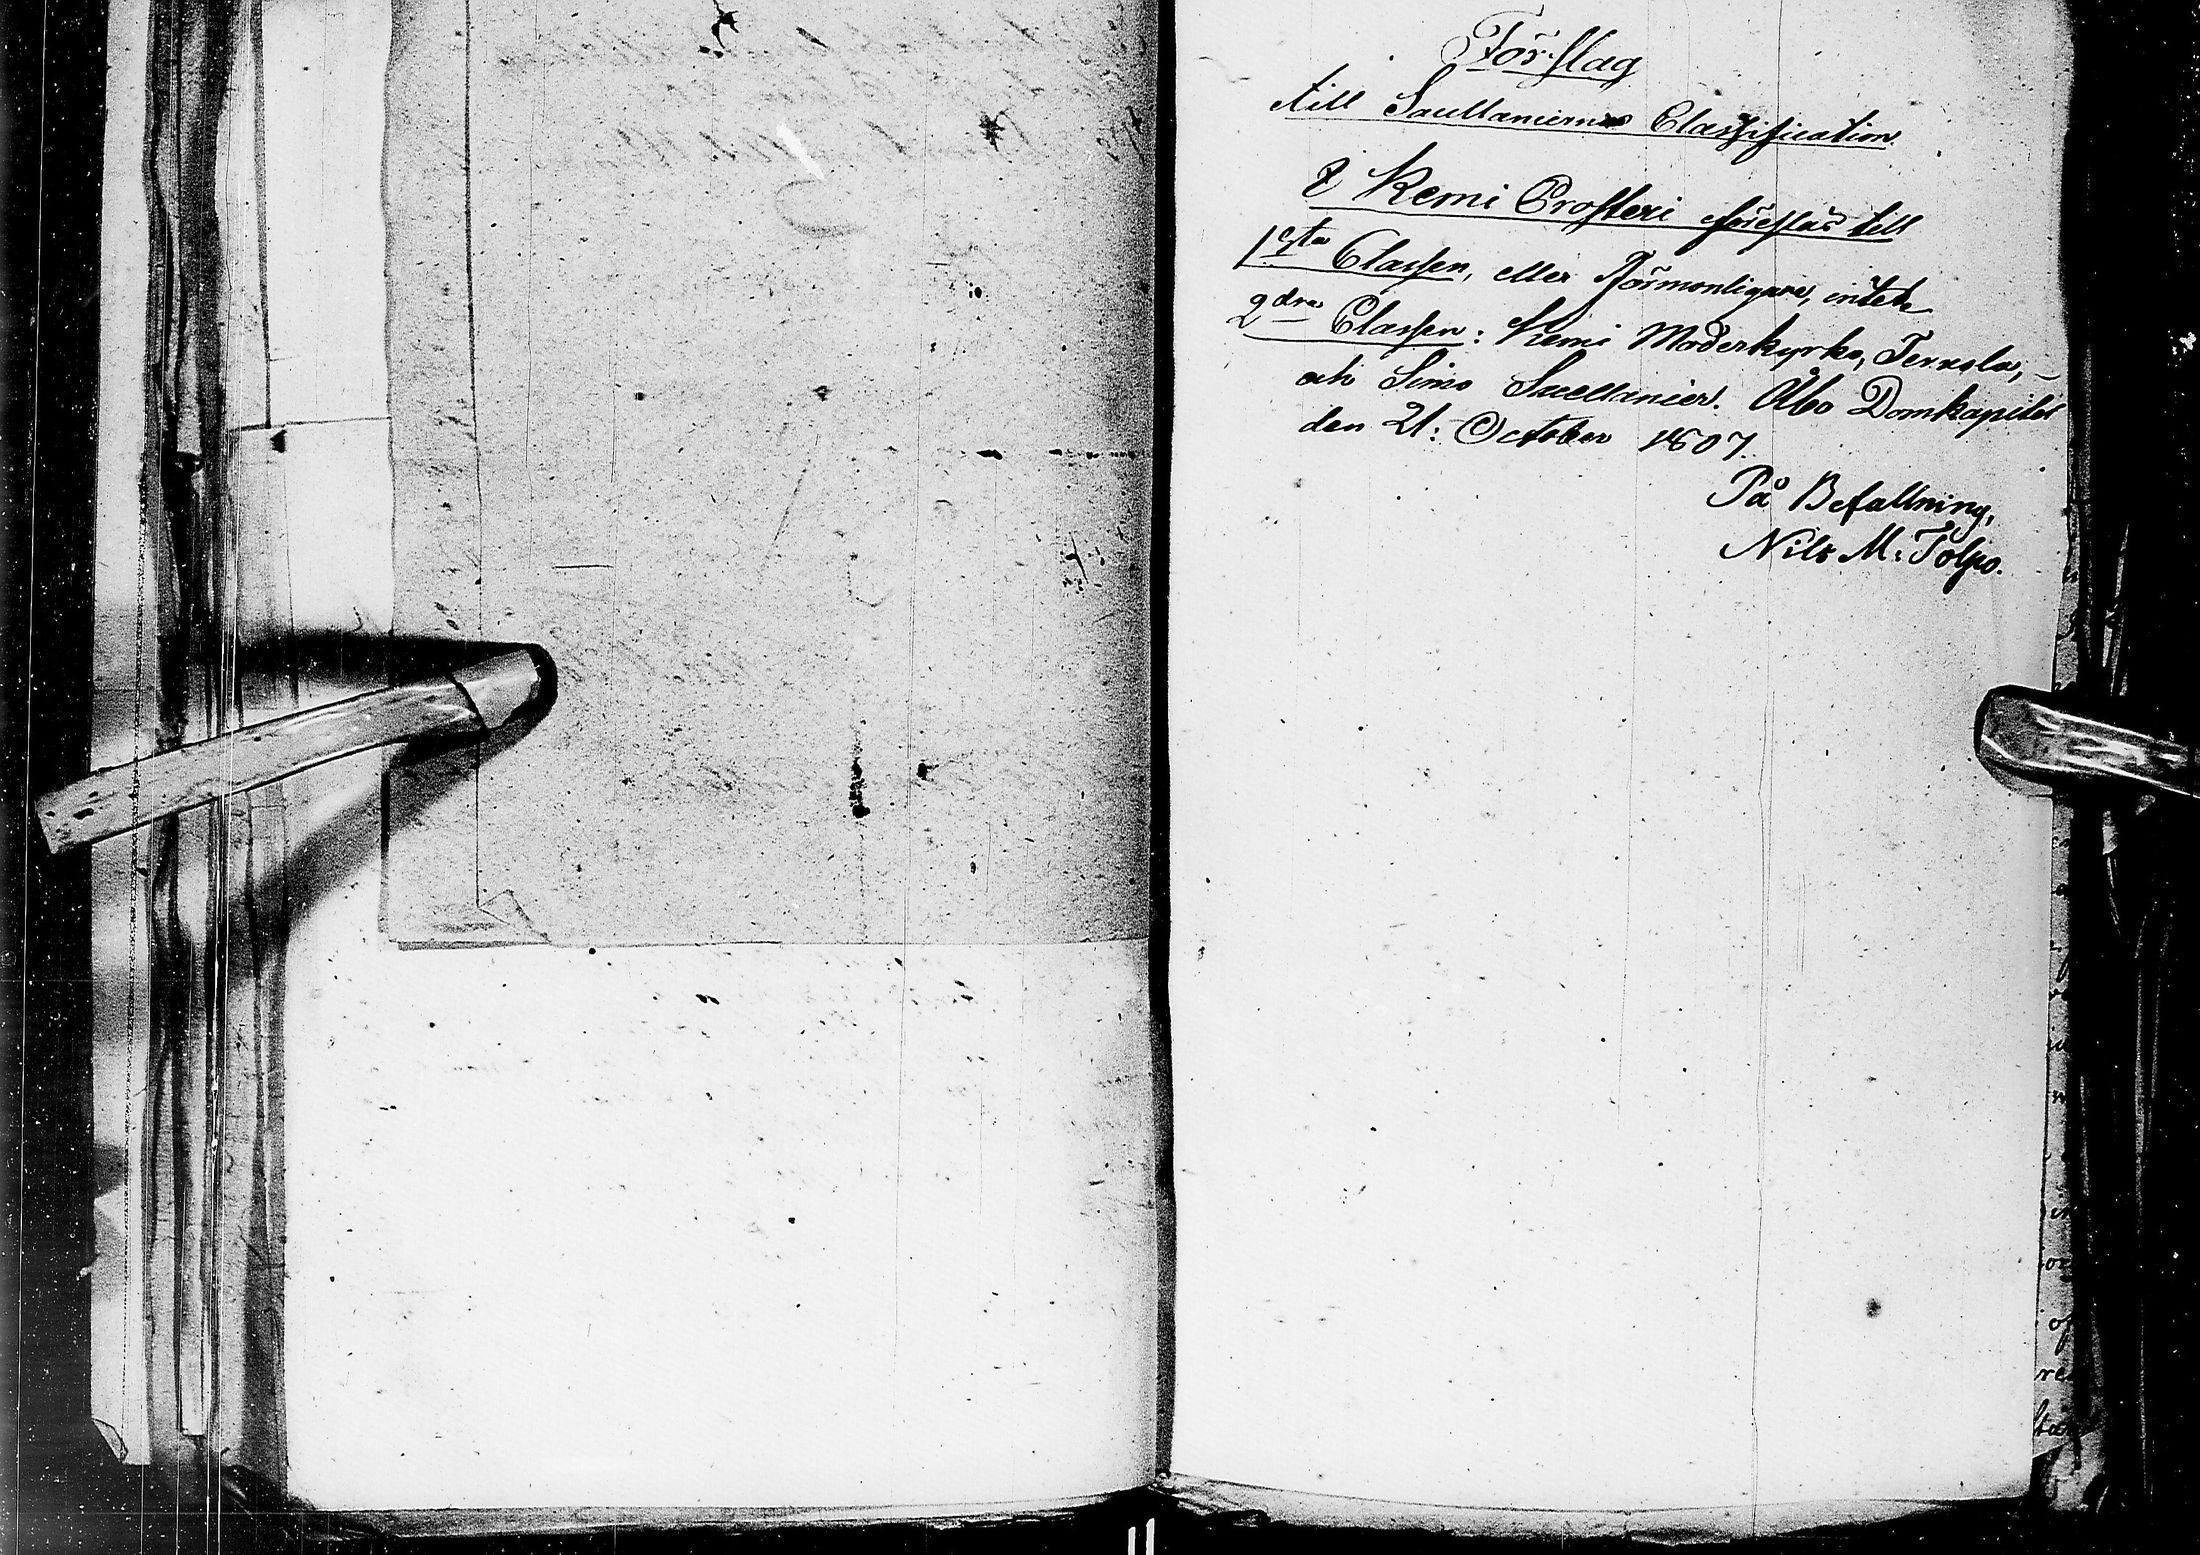 Förslag
till Sacellaniernas Classification.
I Kemi Prosteri föreslås till
1sta Classen, eller Förmonligare, intet
2dra Classen: Kemi Moderkyrko, Tervola,
och Simo Sacellanier. Åbo Domkapitel
den 21: October 1807.
På Befallning,
Nils M: Tolpo.